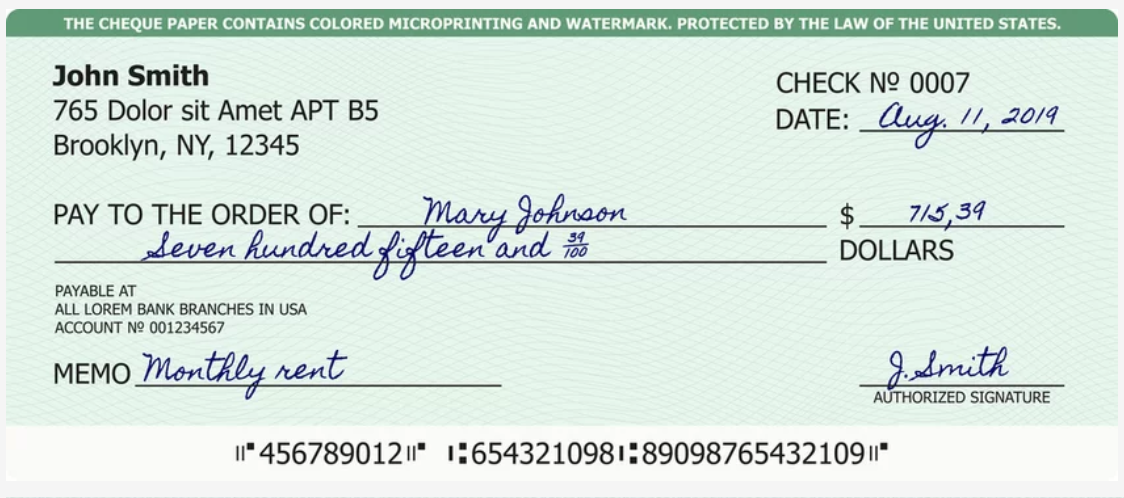 THE CHEQUE PAPER CONTAINS COLORED MICROPRINTING AND WATERMARK. PROTECTED BY THE LAW OF THE UNITED STATES.
John Smith
765 Dolor sit Amet APT B5
Brooklyn, NY, 12345
CHECK № 0007
DATE: Aug. 11, 2019
PAY TO THE ORDER OF: Mary Johnson $ 715,39
Seven hundred fifteen and 39/100 DOLLARS
PAYABLE AT
ALL LOREM BANK BRANCHES IN USA
ACCOUNT № 001234567
MEMO Monthly rent
J. Smith
AUTHORIZED SIGNATURE
⑈456789012⑈ ⑆654321098⑆89098765432109⑈